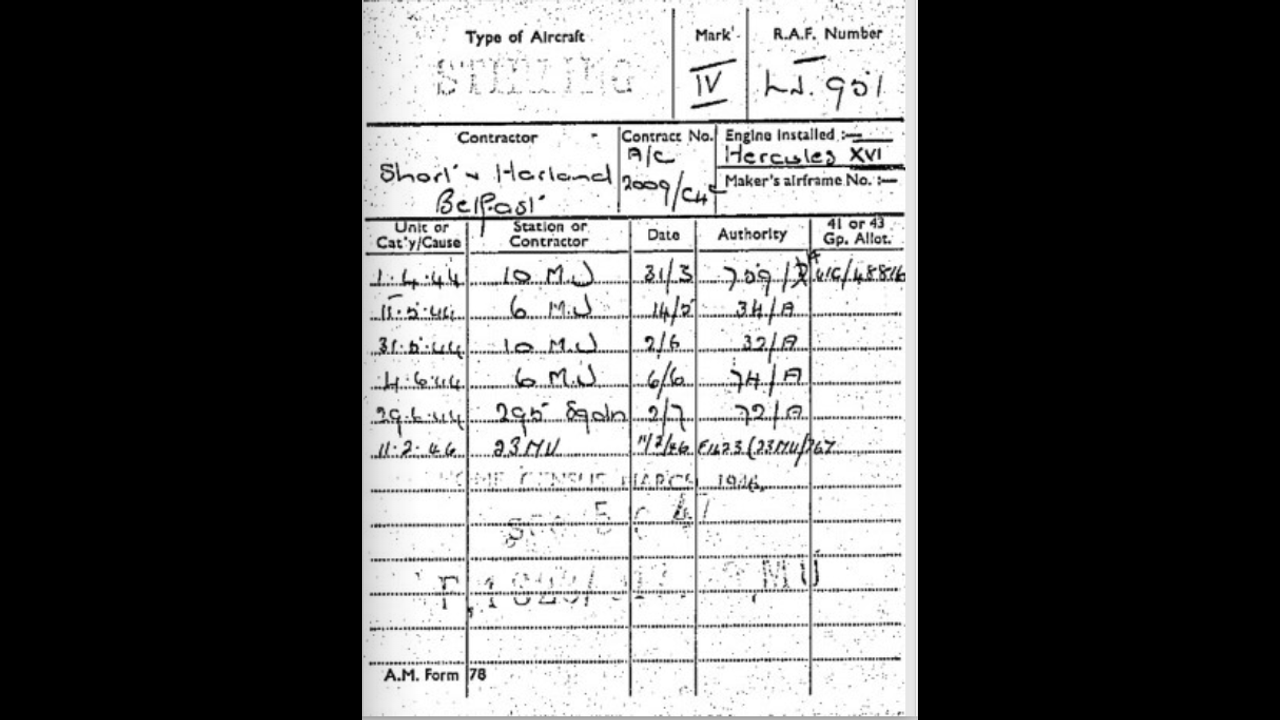 Type of Aircraft Mark R.A.F. Number
STIRLING IV LJ. 951
Contractor Contract No. Engine Installed :—
Short & Harland A/C Hercules XVI
Belfast 2009/C4 Maker's airframe No. :—
Unit or Station or Date Authority 41 or 43
Cat'y/Cause Contractor Gp. Allot.
1.4.44 10 M.U 31/3 709/
11.5.44 6 M.U 14/5 34/A
31.5.44 10 M.U 2/6 32/A
4.6.44 6 M.U 6/6 74/A
29.6.44 295 Sqdn 2/7 72/A
11.2.46 23 MU 11/2/46 (23MU/767
HOME CENSUS MARCH 1946
MU
A.M. Form 78